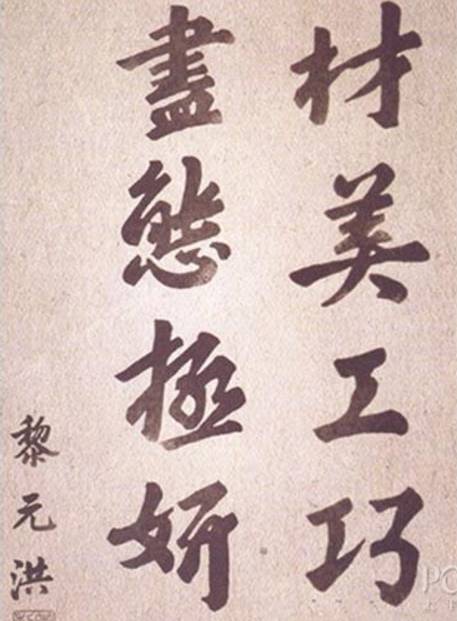 材美工巧
盡態極妍
黎元洪